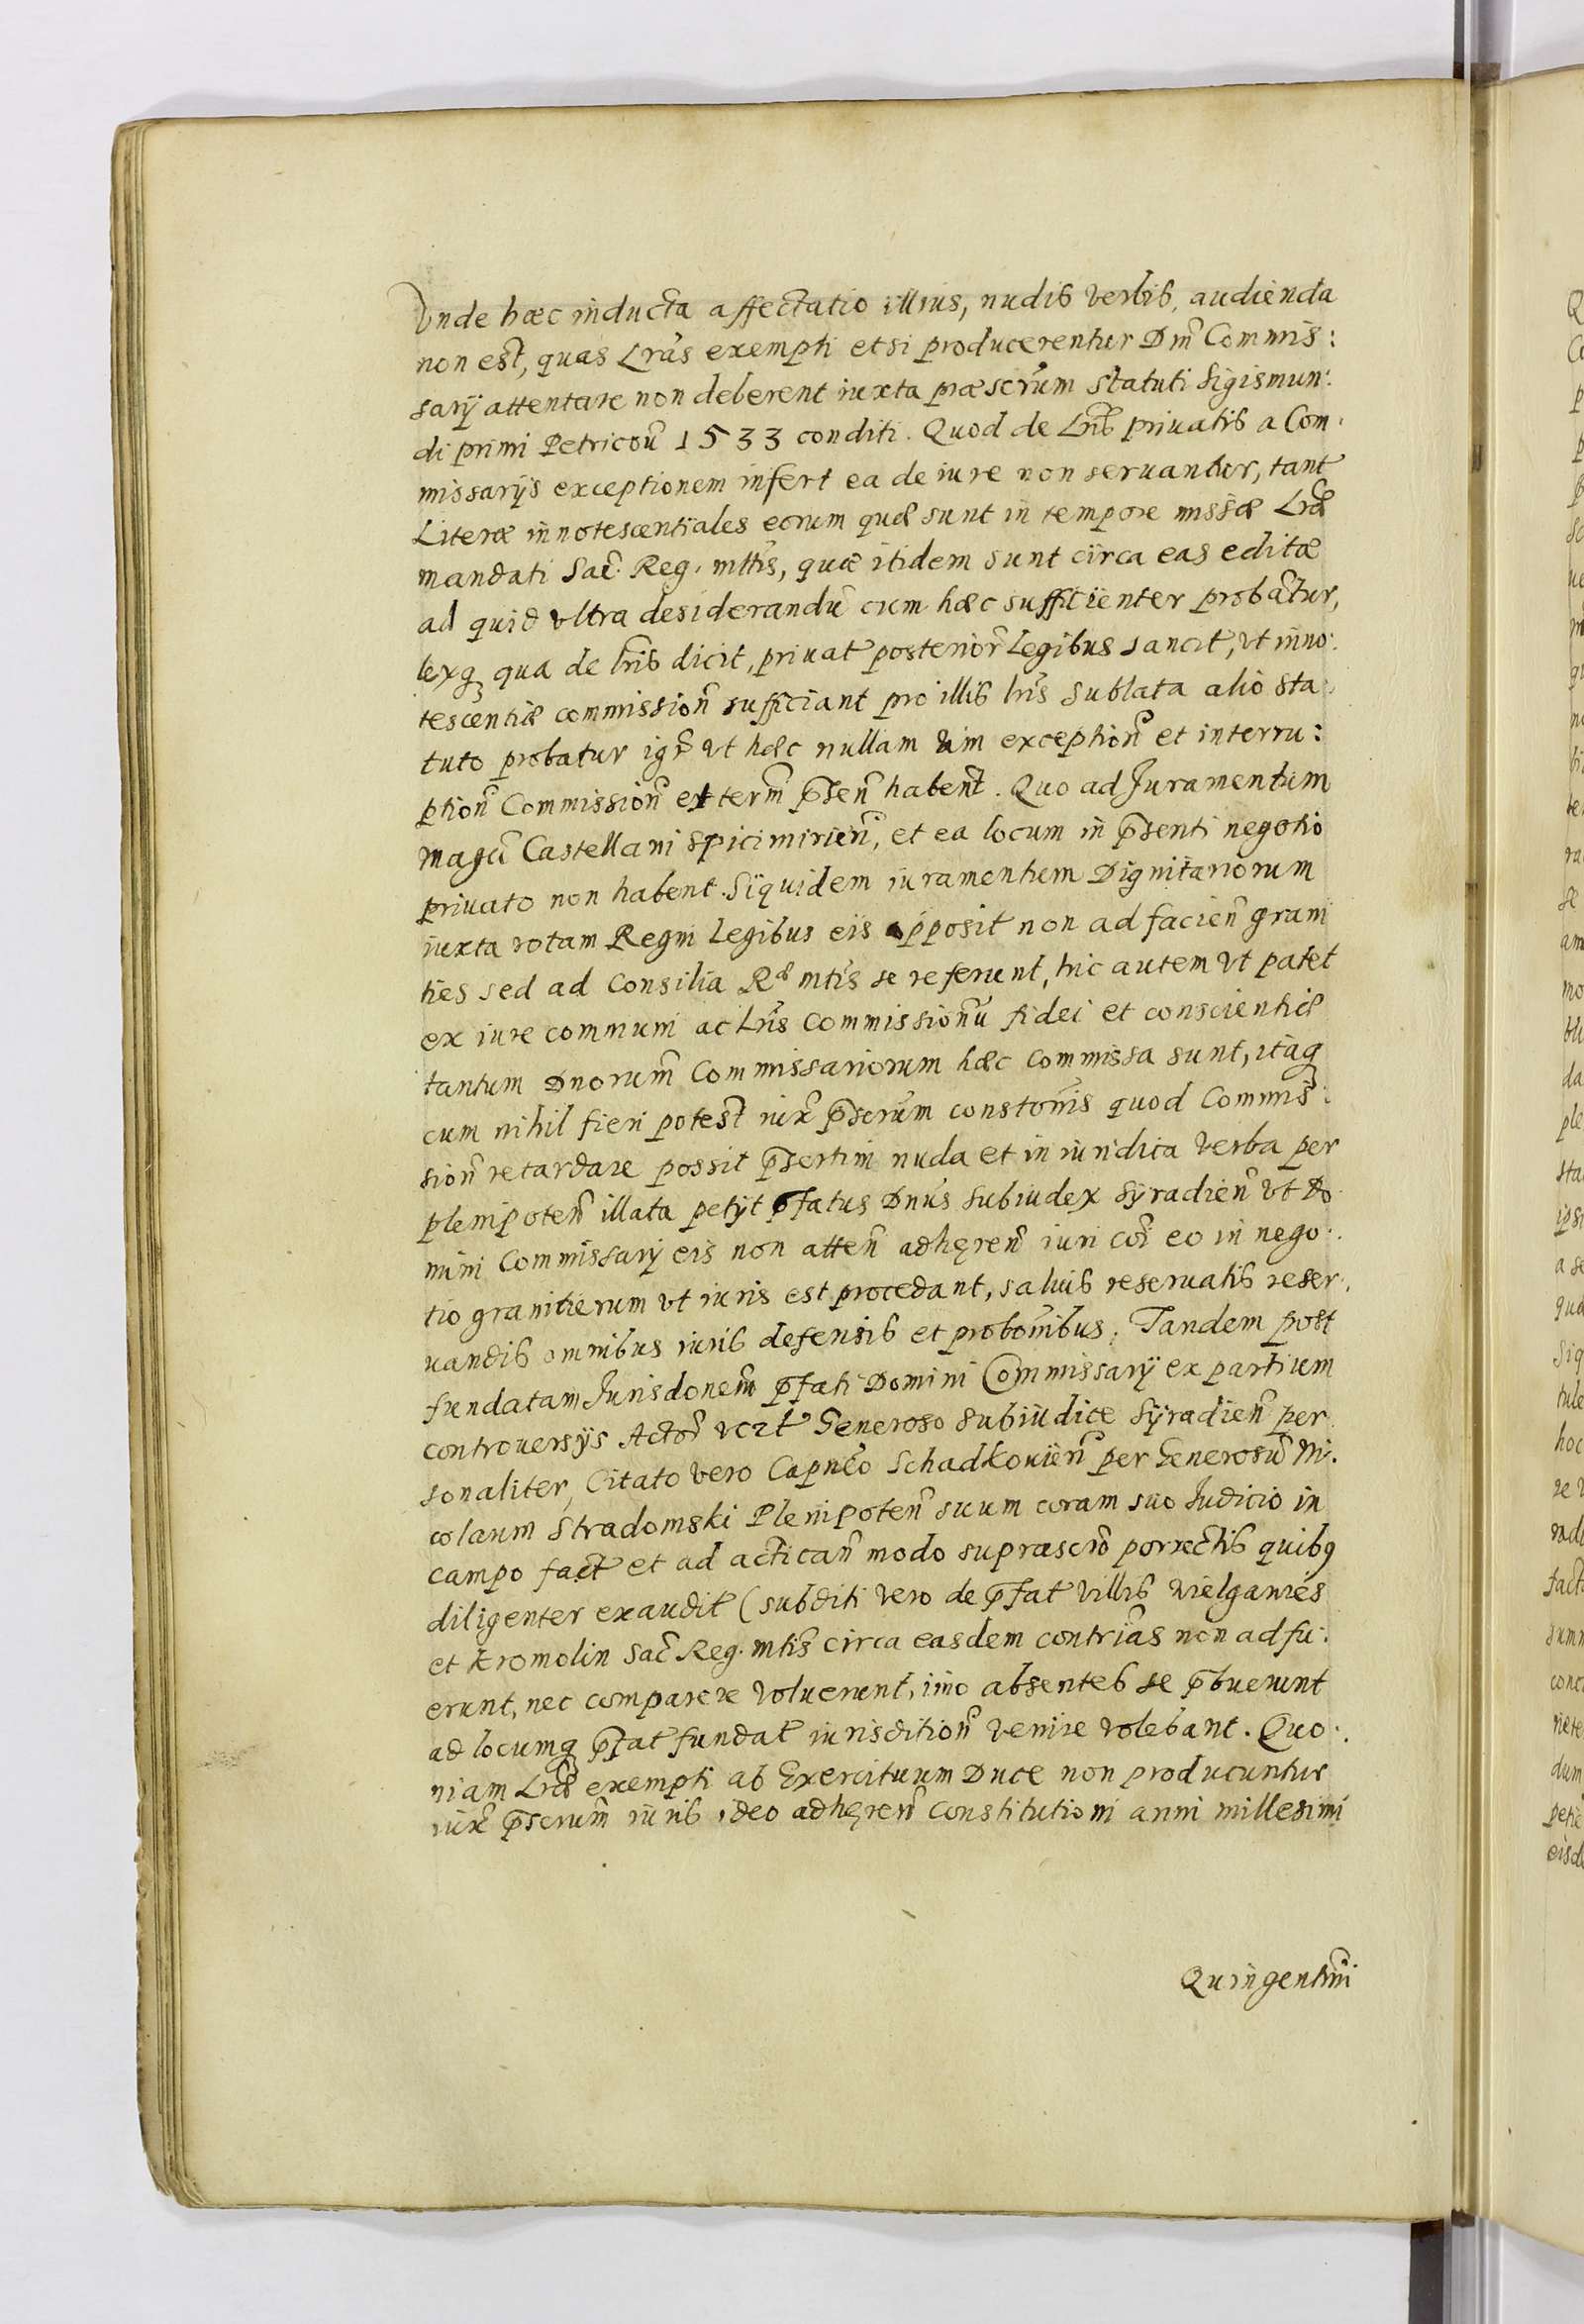 Vnde hæc inducta affectatio illius, nudis verbis, audienda
non est, quas Lrãs exempti etsi producerentur Dm̃ Commis:
sarÿ attentare non deberent iuxta præscrũm statuti Sigismun:
di primi Petricoũ 1533 conditi. Quod de Lrĩs priuatis a Com:
missarÿs exceptionem infert ea de iure non seruantur, tant
Literæ innotescentiales eorum quæ sunt in tempore missæ Lræ
mandati Sac̃. Reg. mttis, quæ itidem sunt circa eas editæ
ad quid vltra desiderandũ cum hæc sufficienter probãtur,
lexq qua de lrĩs dicit, priuat posterior̃ Legibus sancit, vt inno:
tescentiæ commissioñ sufficiant pro illis lrĩs sublata alio sta:
tuto probatur igr̃ vt hæc nullam vim exceptioñ et interru:
ptioñ Commissioñ et term̃ p̃señ habent. Quo ad Juramentum
magci̇̃ Castellani Spicimirien̄, et ea locum in p̃senti negotio
priuato non habent. Siquidem iuramentum Dignitariorum
iuxta rotam Regni Legibus eis apposit non ad facien̄ grani
ties sed ad Consilia Ræ mtĩs se referunt, hic autem vt patet
ex iure communi ac Lrĩs Commissionũ fidei et conscientiæ
tantum Dnorum̃ Commissariorum hæc commissa sunt, itaq
cum nihil fieri potest iux̃ p̃scrũm constonĩs quod Commis:
sion̄ retardare possit p̃sertim nuda et in iuridica verba per
plenipoten̄ illata petÿt p̃fatus Dnũs Subiudex Syradien̄ vt Do
mini Commissarÿ eis non atten̄ adhęren̄ iuri cõi eo in nego:
tio granitierum vt iuris est procedant, saluis reseruatis reser:
uandis omnibus iuris defensis et probonĩbus. Tandem post
fundatam Jurisdonem̃ p̃fati Domini Commissarÿ ex partium
controuersÿs Actor̃ vczt Generoso Subiudice Syradien̄ per
sonaliter, Citato vero Capnẽo Schadkouien̄ per Generosũ Ni:
colaum Stradomski Plenipoten̄ suum coram suo Judicio in
campo fact et ad actican̄ modo suprascrõ porrectis quibq
diligenter exaudit (subditi vero de p̃fat villis Wielganies
et Kromolin Sac̃ Reg. mtĩs circa easdem contrĩas non adfu:
erunt, nec comparere voluerunt, imo absentes se p̃buerunt
ad locumq p̃fat fundat iurisdition̄ venire volebant. Quo:
niam Lræ exempti ab Exercituum Duce non producuntur
iux̃ p̃scrum̃ iuris ideo adhęren̄ Constitutioni anni millesimi
Quingentmĩ